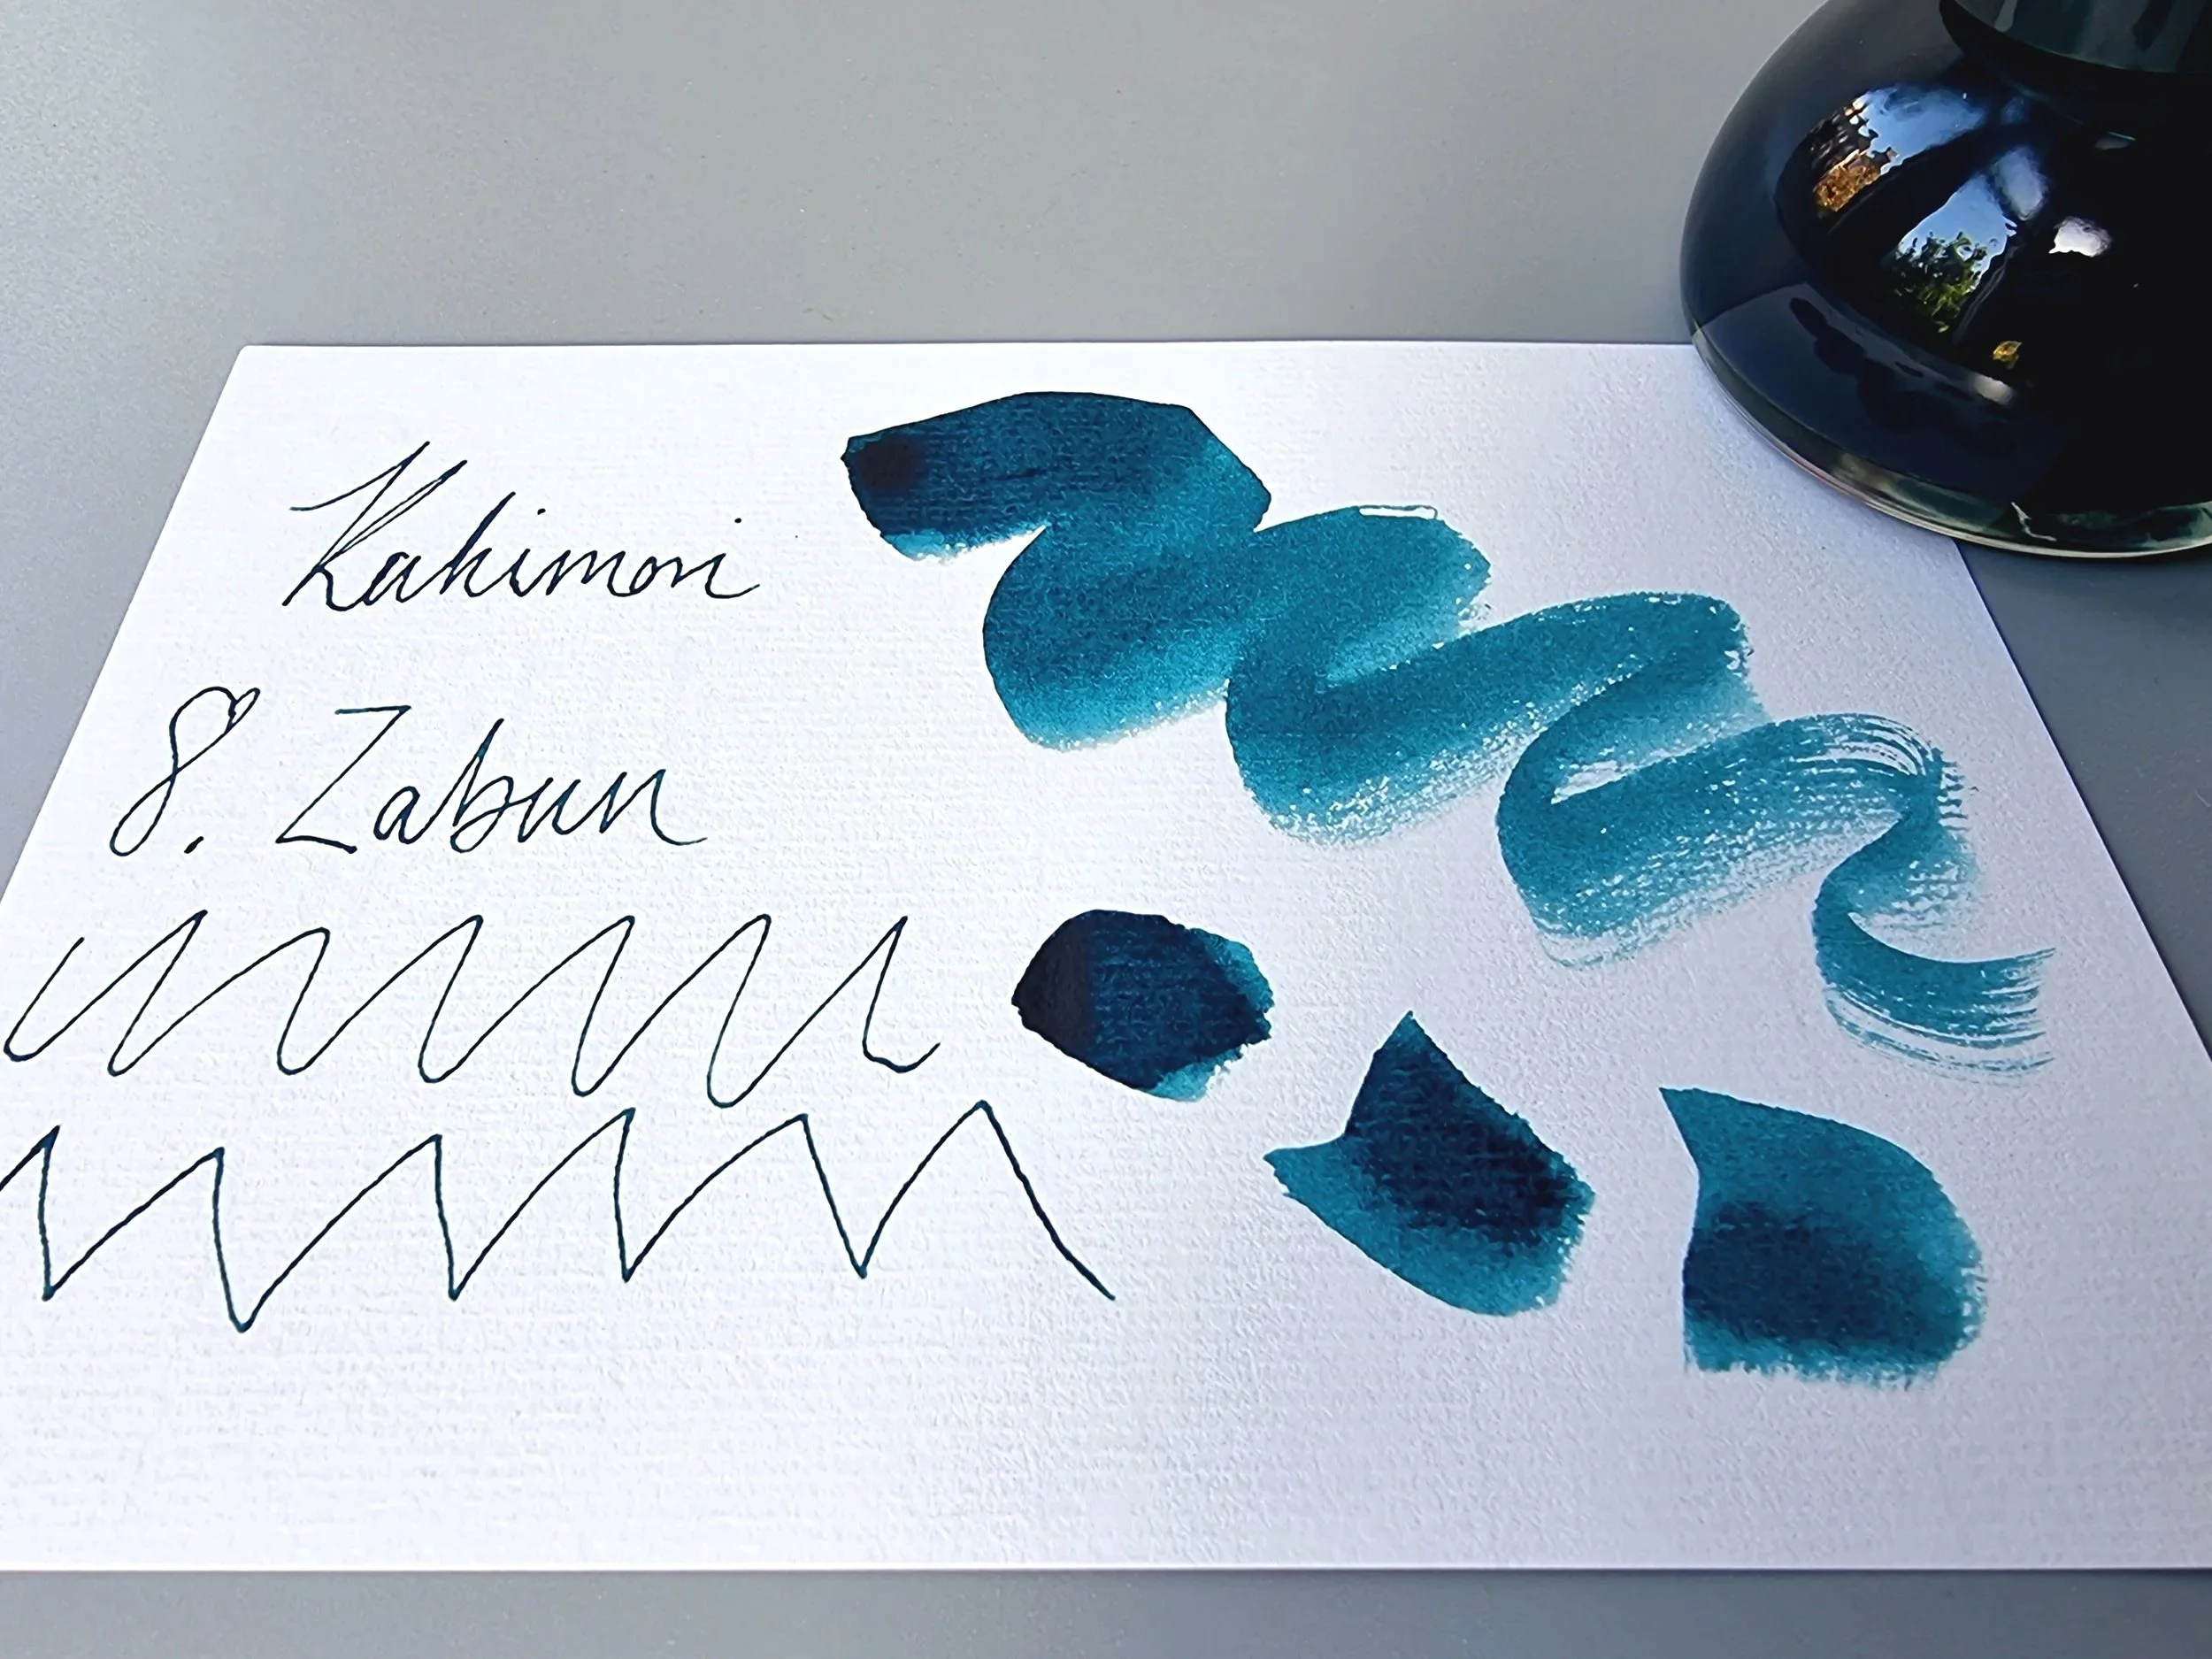 Kakimori
8. Zabun